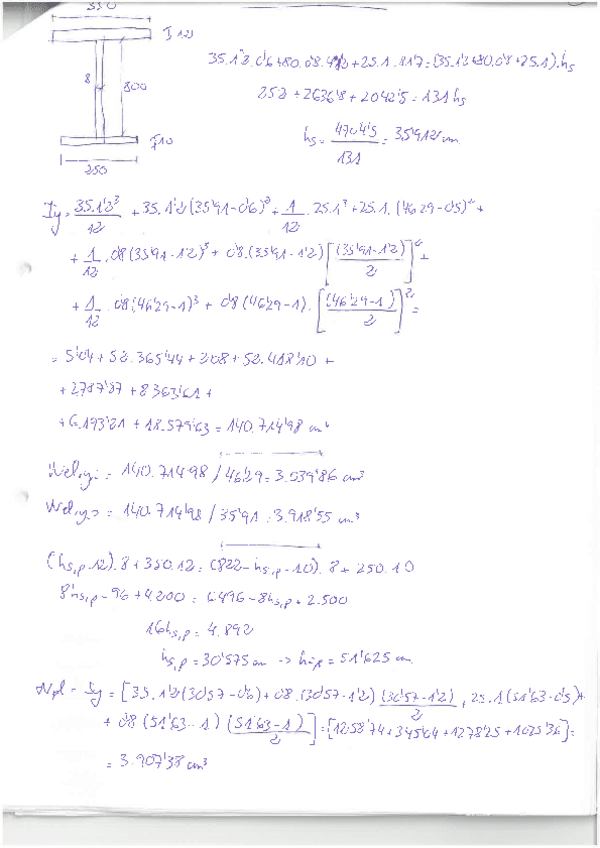 350
I 12
8
800
I 10
250
35.1'2.0'6+80.0'8.41'2+25.1.81'7=(35.1'2+80.0'8+25.1).hs
25'2+2636'8+2042'5=131hs
hs = 4704'5 / 131 = 35'912 cm
Iy = 35.1'2³/12 + 35.1'2(35'91-0'6)² + 1/12 . 25.1³ + 25.1.(46'29-0'5)² +
+ 1/12 . 0'8(35'91-1'2)³ + 0'8.(35'91-1'2)[(35'91-1'2)/2]² +
+ 1/12 . 0'8(46'29-1)³ + 0'8(46'29-1).[(46'29-1)/2]² =
= 5'04 + 52.365'44 + 2'08 + 52.418'10 +
+ 2787'87 + 8363'61 +
+ 6.193'21 + 18.579'63 = 140.714'98 cm⁴
Wel,y,i = 140.714'98 / 46'29 = 3.039'86 cm³
Wel,y,s = 140.714'98 / 35'91 = 3.918'55 cm³
(hs,p-12).8+350.12 = (822-hs,p-10).8+250.10
8hs,p-96+4.200 = 6.496-8hs,p+2.500
16hs,p = 4.892
hs,p = 30'575 cm -> hi,p = 51'625 cm
Wpl - Iy = [35.1'2(30'57-0'6)+0'8.(30'57-1'2)(30'57-1'2)/2+25.1(51'63-0'5)+
+ 0'8(51'63-1)(51'63-1)/2] = [1258'74+345'04+1278'25+1025'36] =
= 3.907'38 cm³